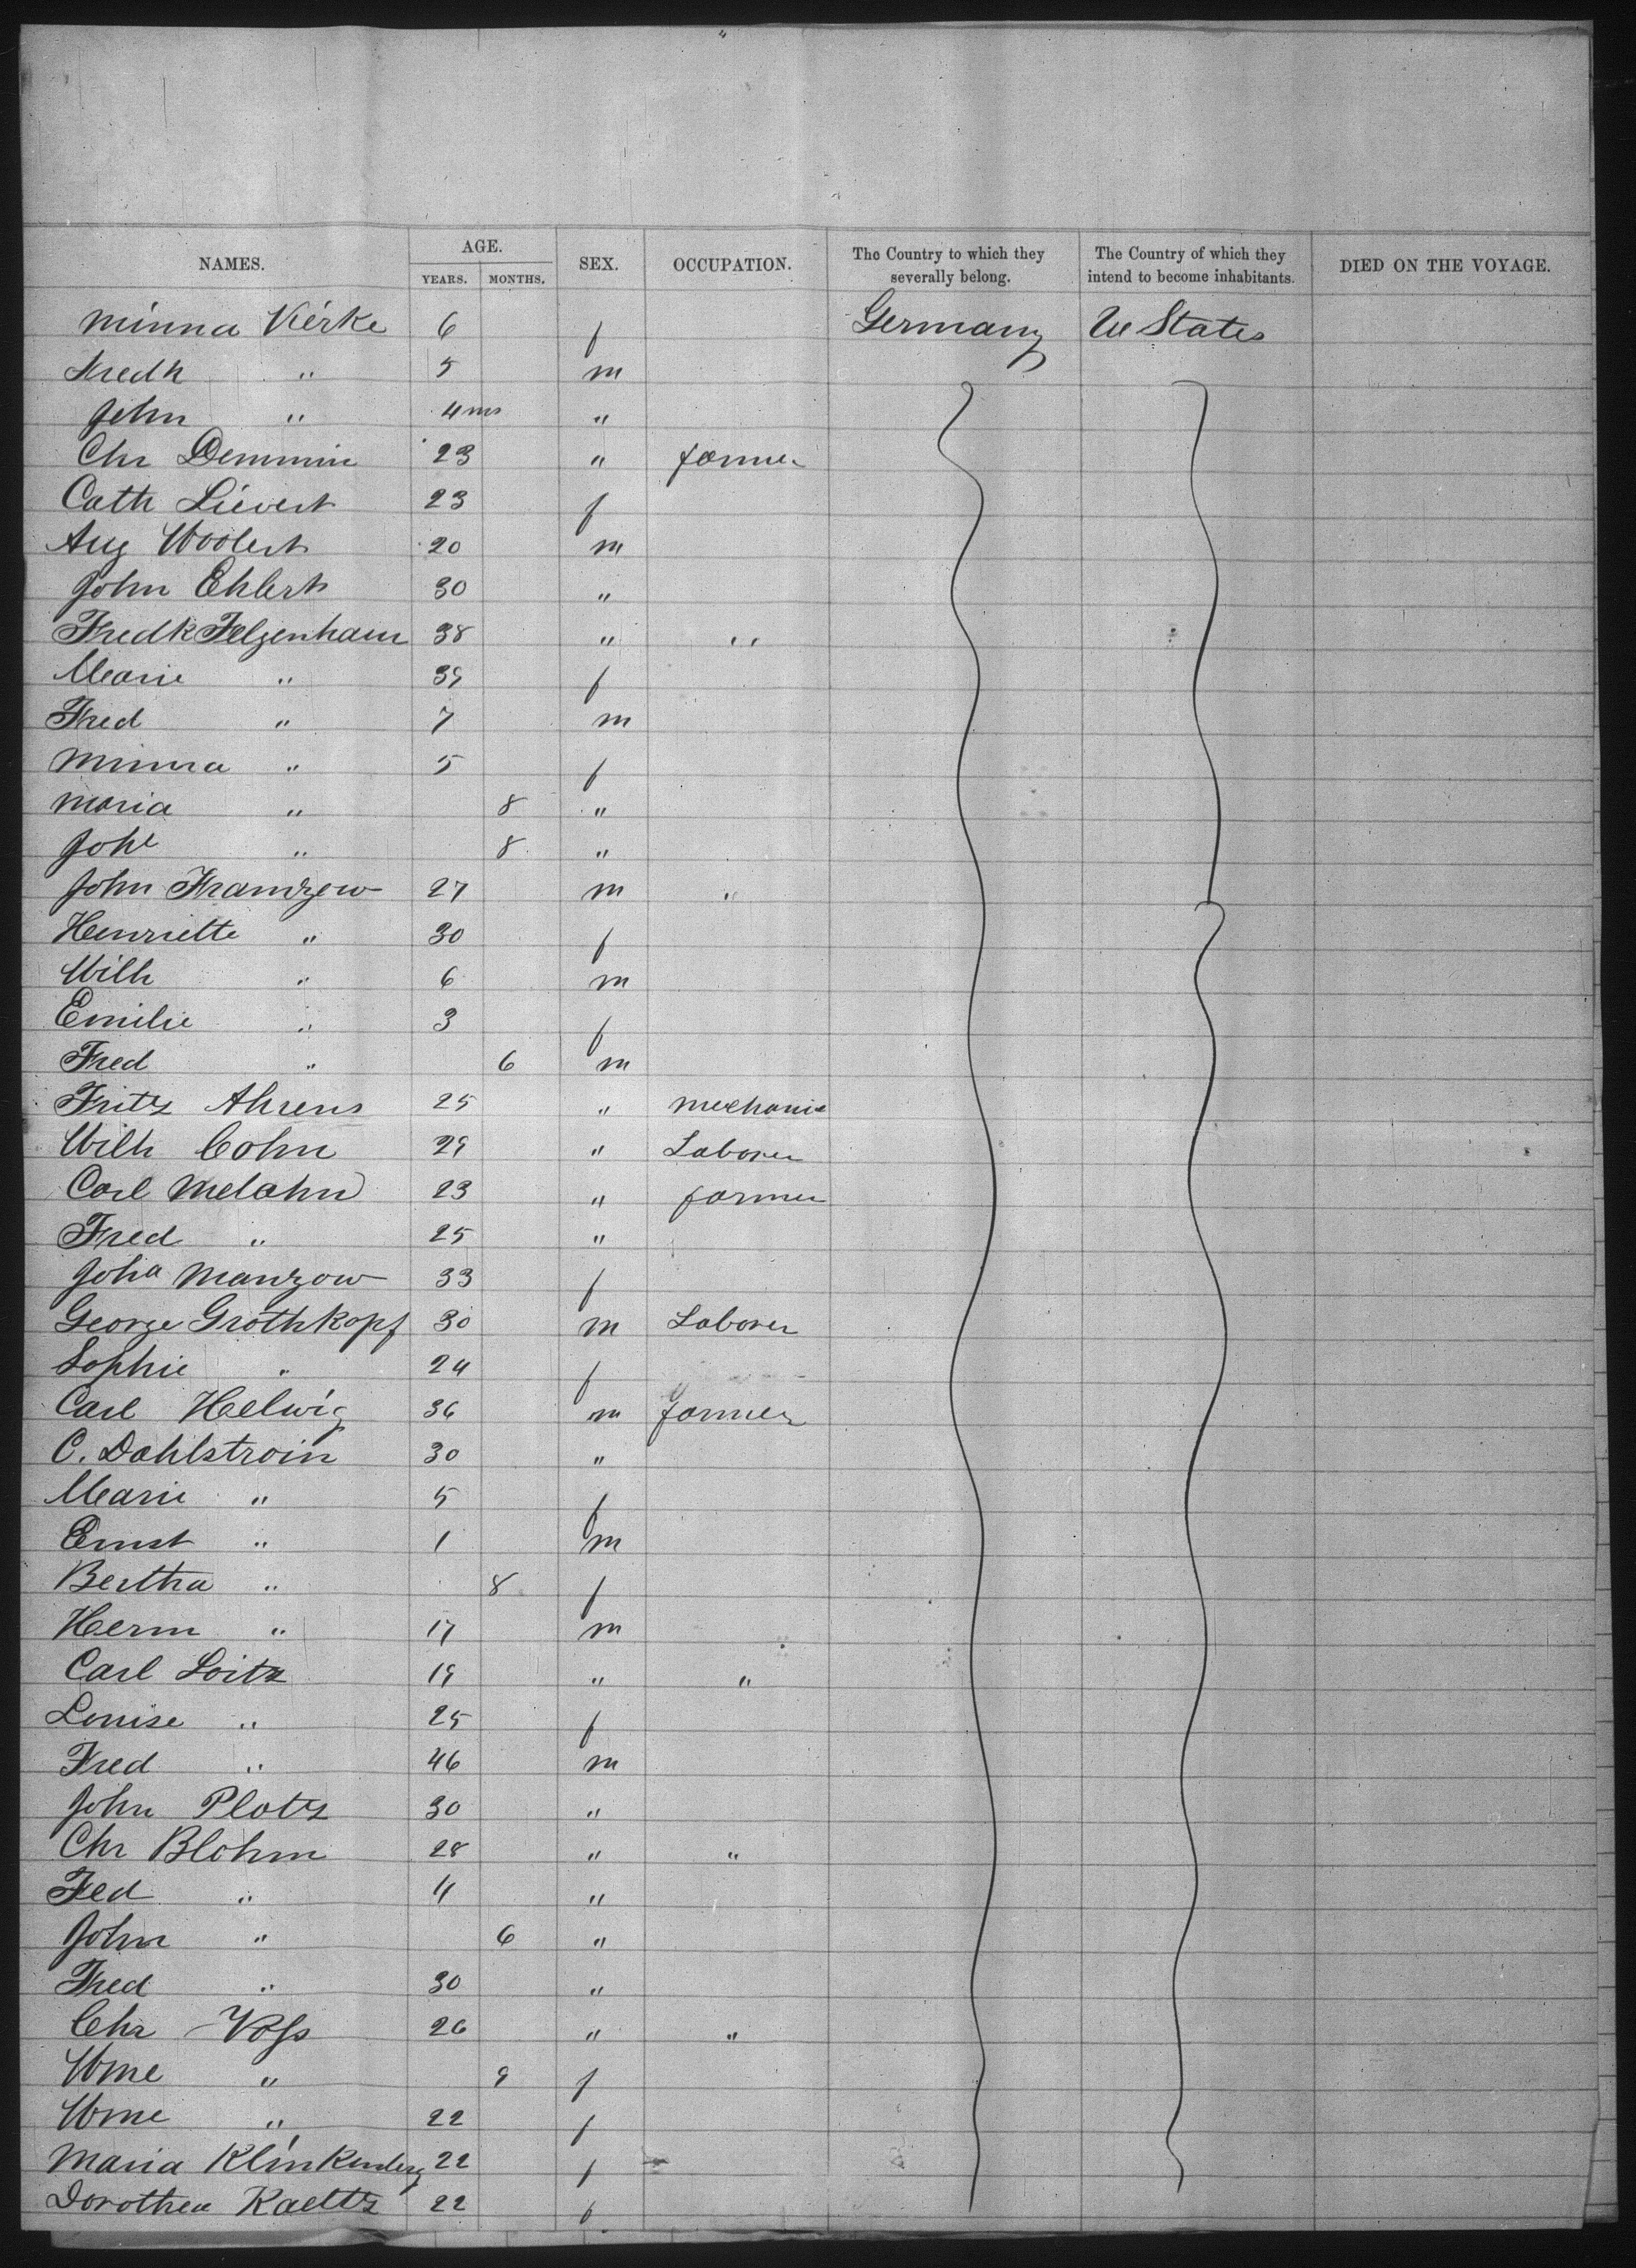 NAMES. AGE. SEX. OCCUPATION. The Country to which they severally belong. The Country of which they intend to become inhabitants. DIED ON THE VOYAGE.
YEARS. MONTHS.
Minna Vierke 6 f Germany U States
Fredk " 5 m
John " 4 ms "
Chr Demmin 23 " farmer
Cath Lievert 23 f
Aug Woolert 20 m
John Ehlert 30 "
Fredk Felzenhaur 38 " "
Marie " 39 f
Fred " 7 m
Minna " 5 f
Maria " 8 "
Johe " 8 "
John Frandzow 27 m "
Henriette " 30 f
Wilh " 6 m
Emilie " 3 f
Fred " 6 m
Fritz Ahrens 25 " mechanic
Wilh Cohn 29 " Laborer
Carl Melahn 23 " farmer
Fred " 25 "
Joha Manzow 33 f
George Grothkopf 30 m Laborer
Sophie " 24 f
Carl Helwig 36 m farmer
C. Dahlstroin 30 "
Marie " 5 f
Ernst " 1 m
Bertha " 8 f
Herm " 17 m
Carl Loitz 19 " "
Louise " 25 f
Fred " 46 m
John Plotz 30 "
Chr Blohm 28 " "
Fed " 4 "
John " 6 "
Fred " 30 "
Chr Voss 26 " "
Wme " 9 f
Wme " 22 f
Maria Klinkenberg 22 f
Dorothea Kaeltz 22 f